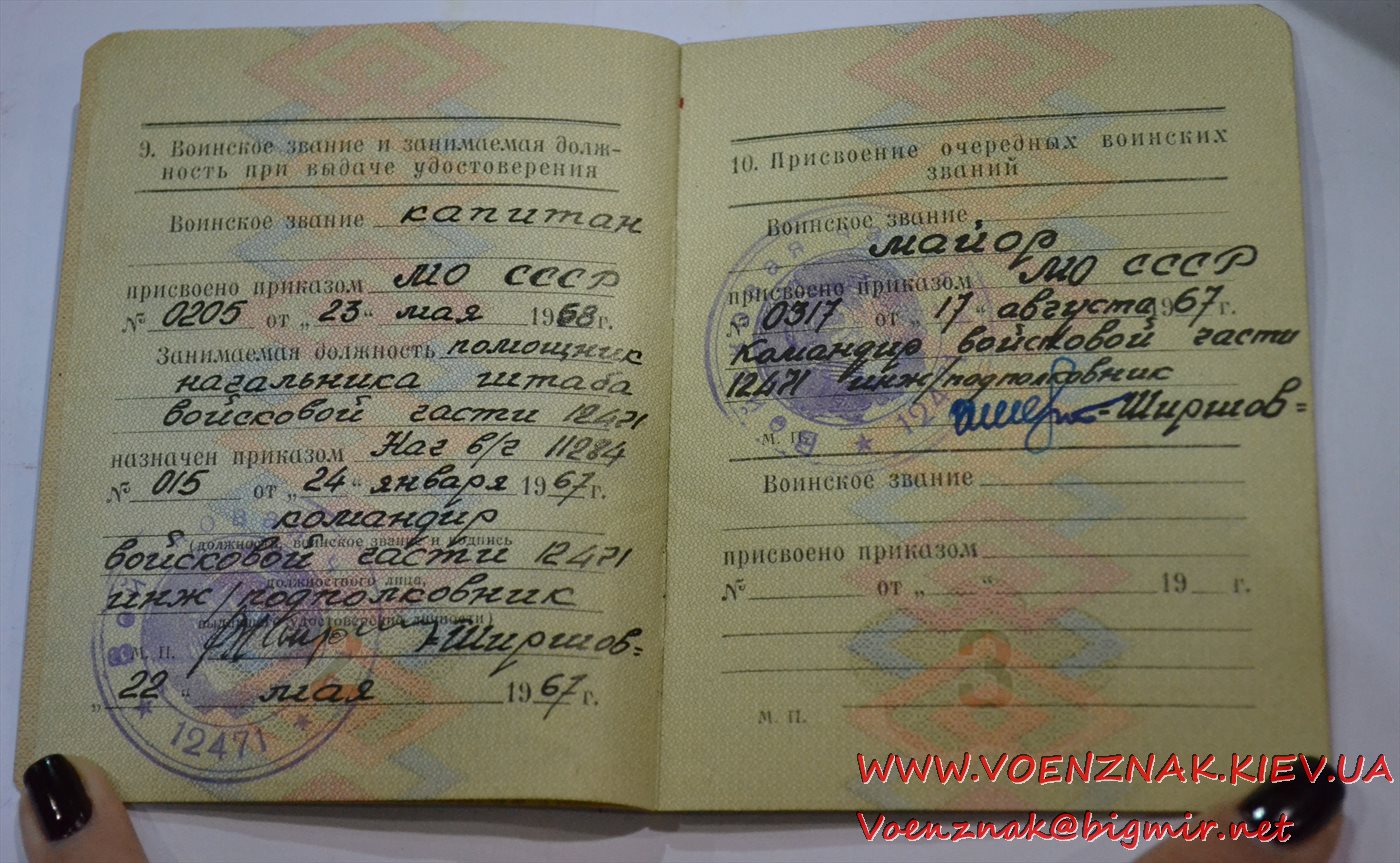 9. Воинское звание и занимаемая долж-
ность при выдаче удостоверения
Воинское звание капитан
присвоено приказом МО СССР
№ 0205 от „23" мая 1968 г.
Занимаемая должность помощник
начальника штаба
войсковой части 12471
назначен приказом Нач в/ч 11284
№ 015 от „24" января 1967 г.
командир
(должность, воинское звание и подпись
войсковой части 12471
должностного лица,
инж/подполковник
выдавшего удостоверение личности)
М. П. =Ширшов=
„22" мая 1967 г.
12471
10. Присвоение очередных воинских
званий
Воинское звание
майор
присвоено приказом МО СССР
№ 0317 от „17" августа 1967 г.
Командир войсковой части
12471 инж/подполковник
=Ширшов=
М. П.
12471
Воинское звание
присвоено приказом
№ от „ " 19 г.
3
М. П.
WWW.VOENZNAK.KIEV.UA
Voenznak@bigmir.net